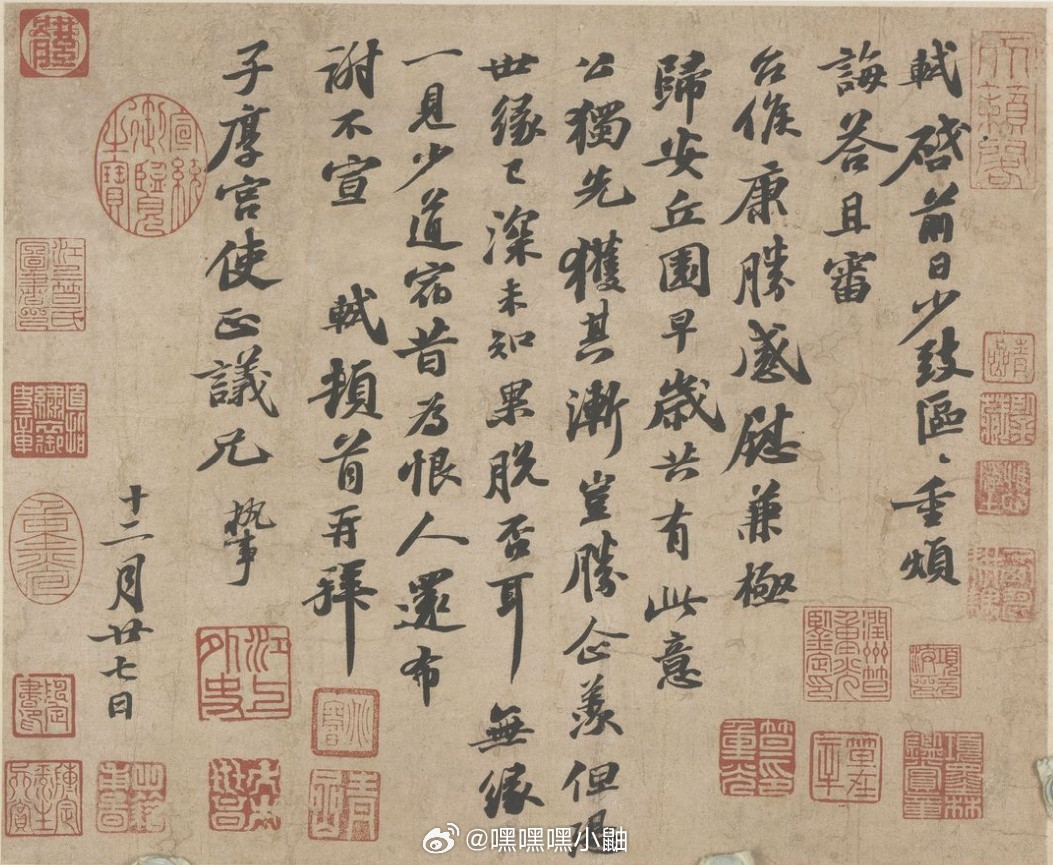 軾啓前日少致區〻重煩
誨荅且審
台候康勝感慰兼極
歸安丘園早歲共有此意
公獨先獲其漸豈勝企羨但恐
世緣已深未知果脫否耳無緣
一見少道宿昔為恨人還布
謝不宣 軾頓首再拜
子厚宮使正議兄 執事
十二月廿七日
宣統御覽之寶
江上外史
@嘿嘿嘿小鼬